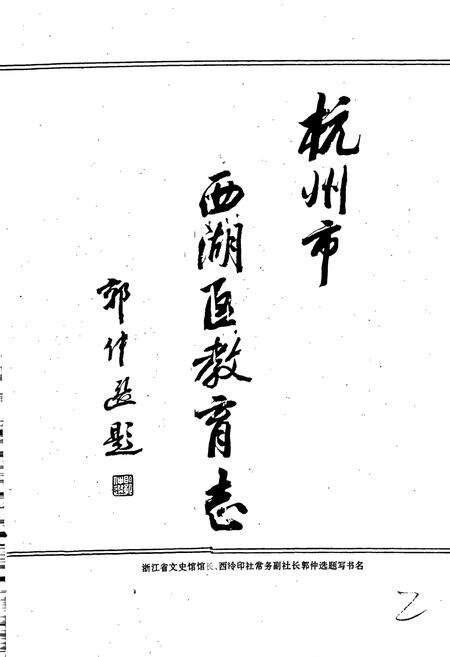 杭州市
西湖区教育志
郭仲选题
浙江省文史馆馆长、西泠印社常务副社长郭仲选题写书名